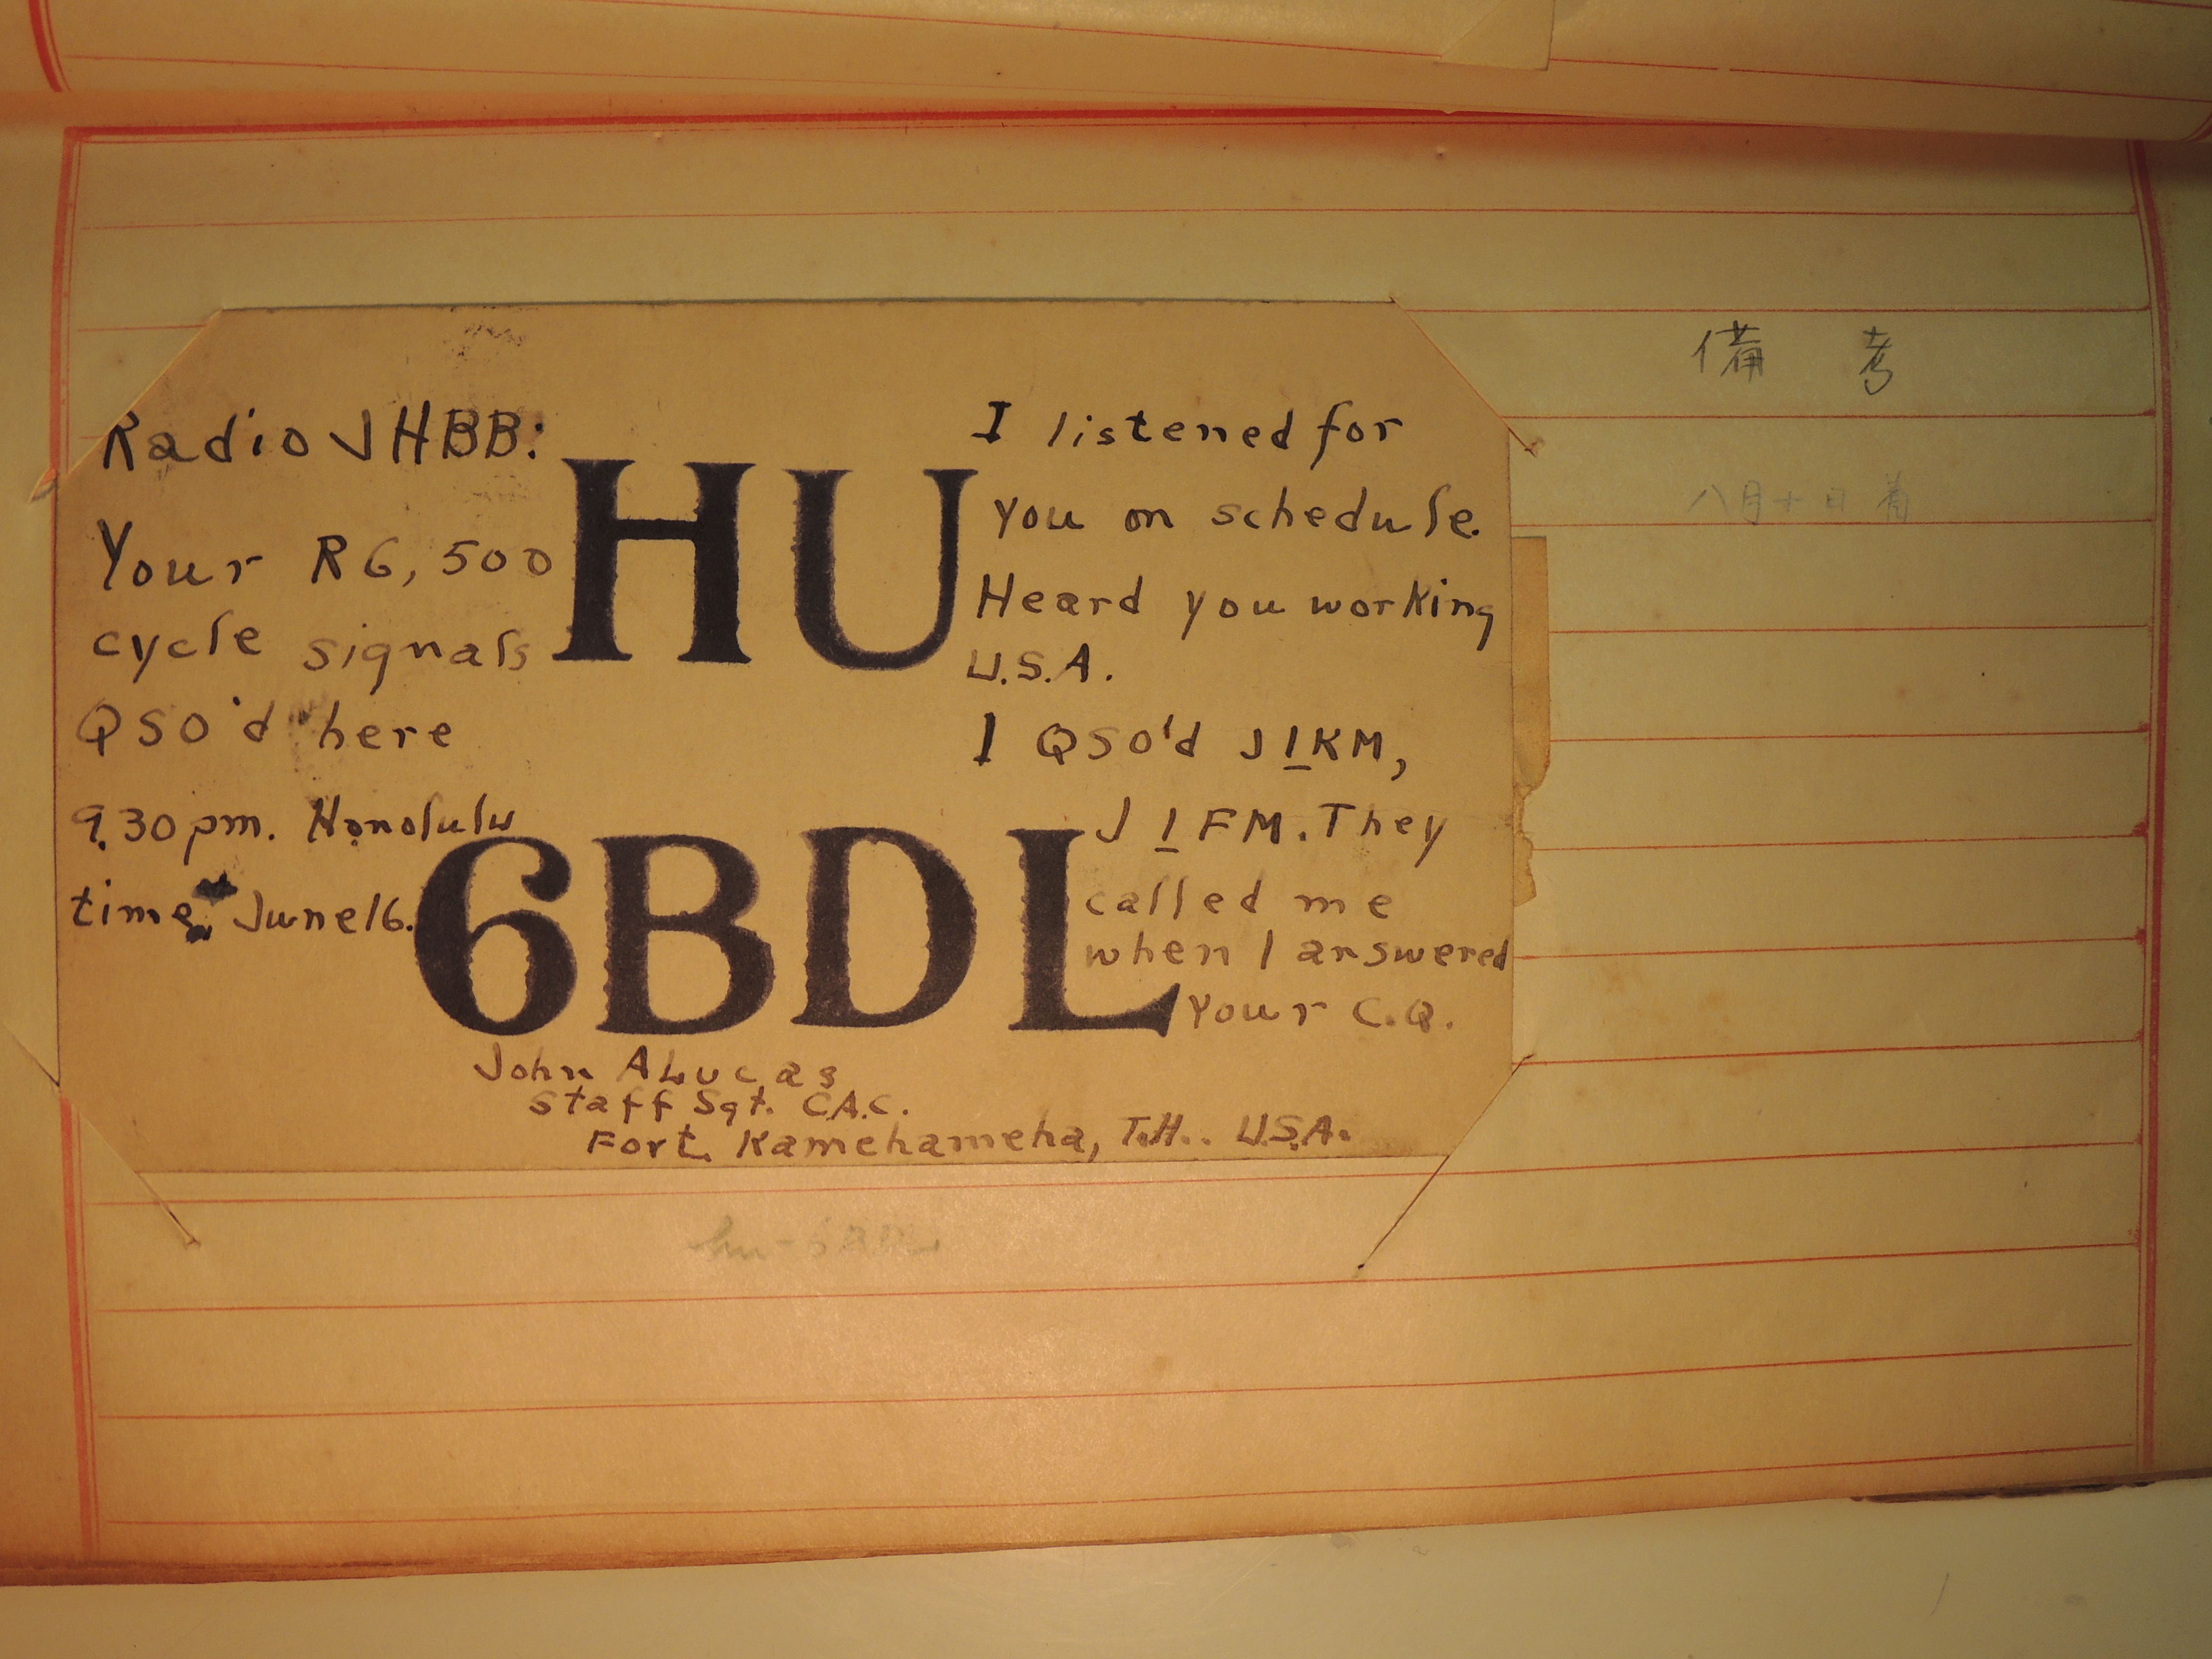 Radio JHBB:
Your R6, 500
cycle signals
QSO'd here
9.30 pm. Honolulu
time June 16.
HU
6BDL
I listened for
you on schedule.
Heard you working
U.S.A.
I QSO'd J1KM,
J1FM. They
called me
when I answered
your C.Q.
John A Lucas
Staff Sgt. C.A.C.
Fort Kamehameha, T.H.. U.S.A.
備考
八月十日着